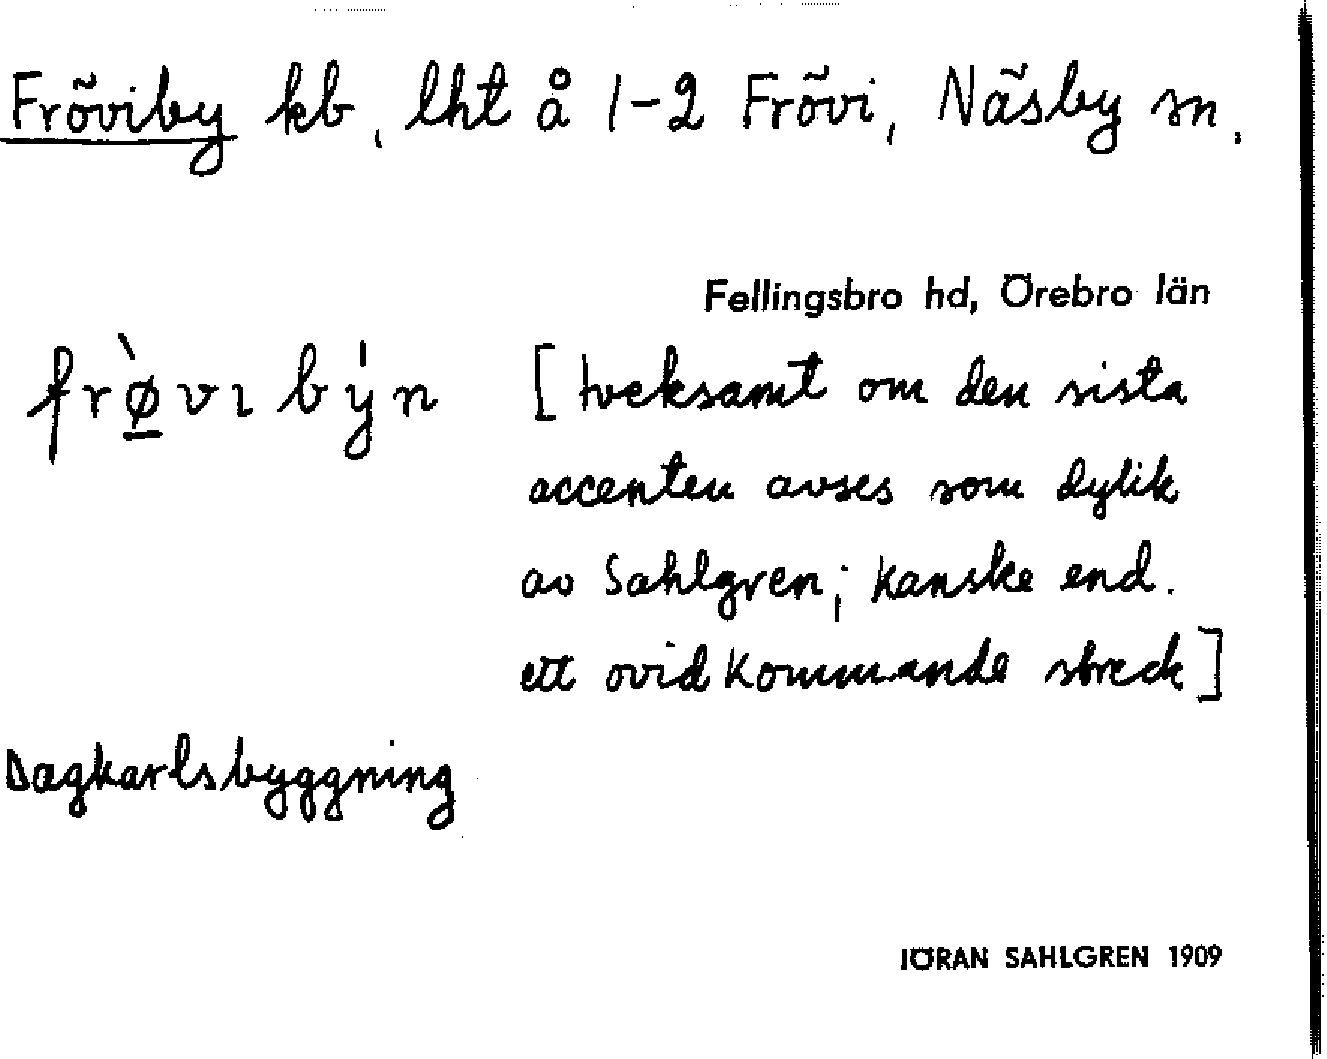 Fröviby kb, lht å 1-2 Frövi, Näsby sn,
Fellingsbro hd, Örebro län
frø̲̀vɩbẏ́n [tveksamt om den sista
accenten avses som dylik
av Sahlgren; kanske end.
ett ovidkommande streck]
Dagkarlsbyggning
JÖRAN SAHLGREN 1909